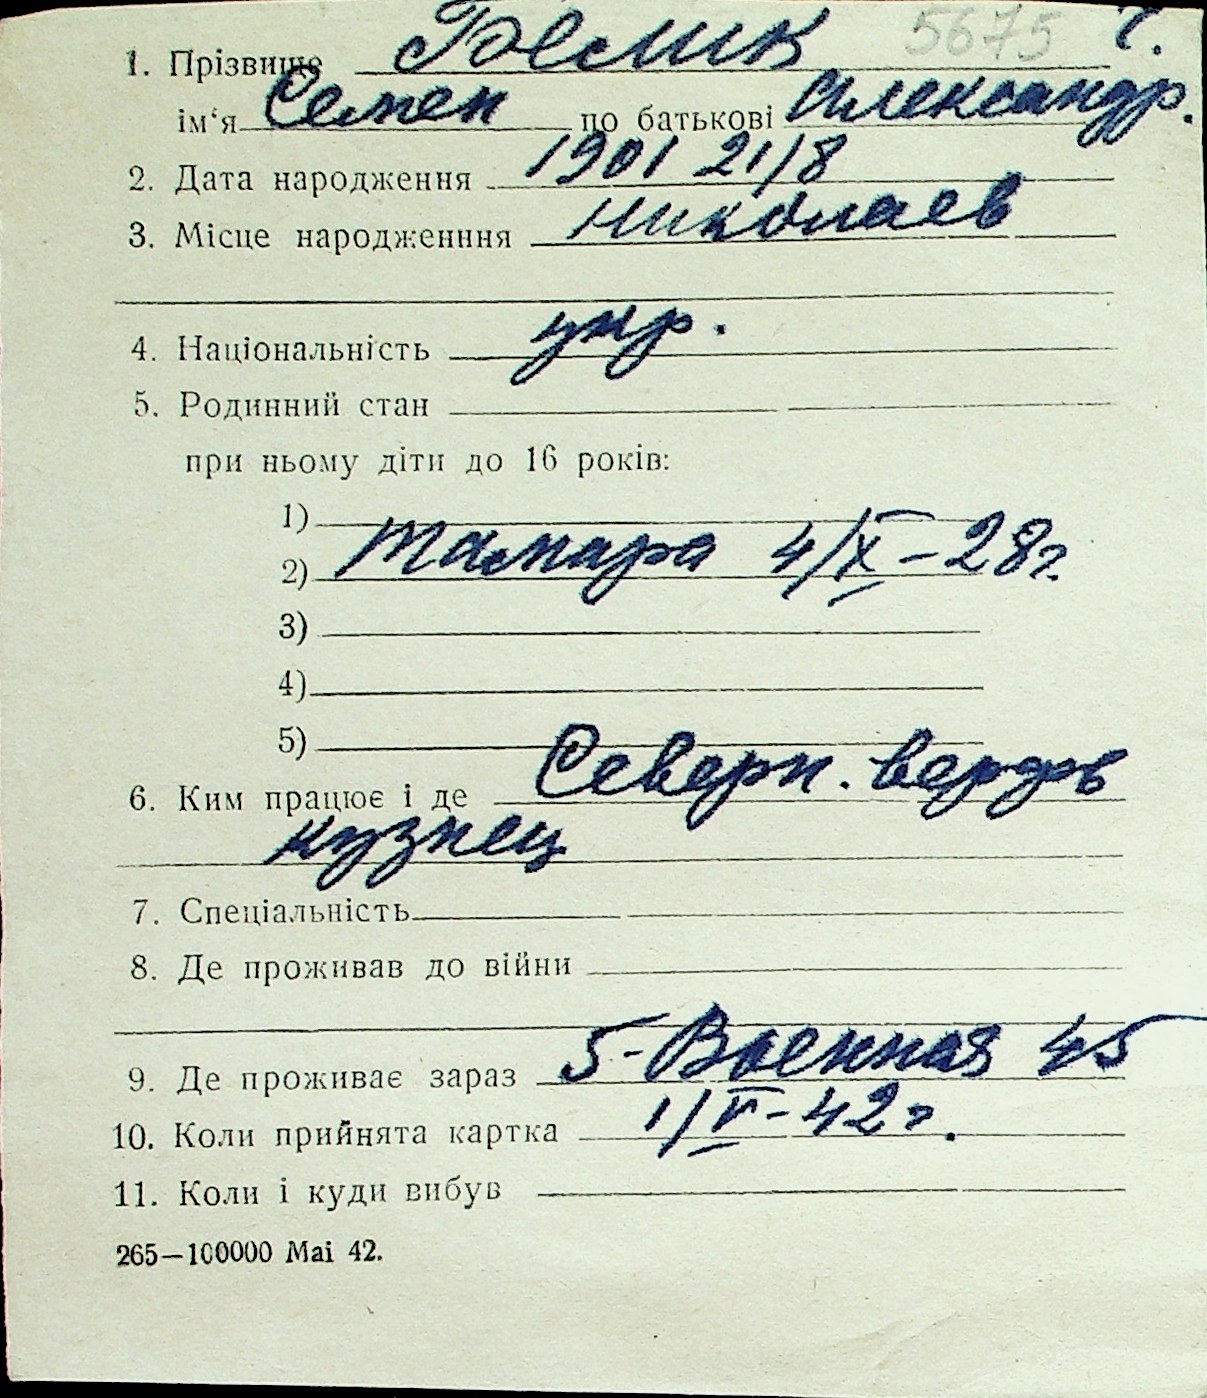 1. Прізвище Бемик 5675 С.
ім‘я Семен по батькові Александр.
2. Дата народження 1901 21/8
3. Місце народженння Николаев
4. Національність укр.
5. Родинний стан
при ньому діти до 16 років:
1)
2) Тамара 4/X – 28 г.
3)
4)
5)
6. Ким працює і де Северн. верфь
кузнец
7. Спеціальність
8. Де проживав до війни
9. Де проживає зараз 5-Военная 45
10. Коли прийнята картка 1/V-42 г.
11. Коли і куди вибув
265—100000 Mai 42.